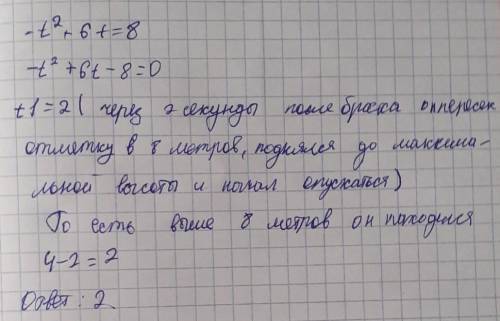 -t² + 6t = 8
-t² + 6t - 8 = 0
t1 = 2 ( через 2 секунды после броска он пересек
отметку в 8 метров, поднялся до максима-
льной высоты и начал опускаться)
То есть выше 8 метров он находился
4-2 = 2
Ответ: 2